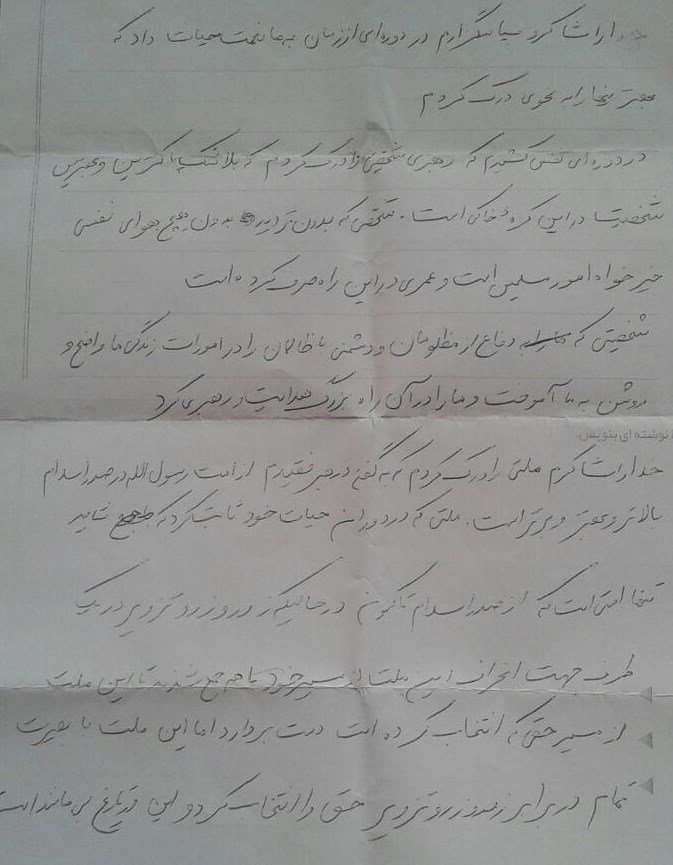 خدا را شاکرد سپاسگزارم در دوره‌ای از زمان به ما نعمت حیات داد که
بهترینها را به نحوی درک کردم
در دوره‌ای نفس کشیدم که رهبری شخصی را درک کردم که بلاشک پاکترین و بهترین
شخصیتها در این کره خاکی است. شخصی که بدون تردید بدون هیچ هوای نفسی
خیر خواه امور مسلمین است و عمری در این راه صرف کرده است
شخصیتی که دفاع از مظلومان و دشمنی با ظالمان را در امورات زندگی ما واضح و
روشن به ما آموخت و ما را در آن راه بزرگ هدایت و رهبری کرد
نوشته ای بنویس
خدا را شاکرم ملتی را درک کردم که به گفته رهبر فقیدم از امت رسول الله در صدر اسلام
بالاتر و بهتر و برتر است. ملتی که در دوران حیات خود ثابت کرد که شاید
تنها امتی است که از صدر اسلام تاکنون در حالیکه زر و زور و تزویر در یک
طرف جهت انحراف این ملت از مسیر خود با هم جمع شدند تا این ملت
از مسیر حق که انتخاب کرده است دست بردارد اما این ملت با بصیرت
تمام در برابر زر و زور و تزویر حق را انتخاب کرد و این در تاریخ بی مانند است